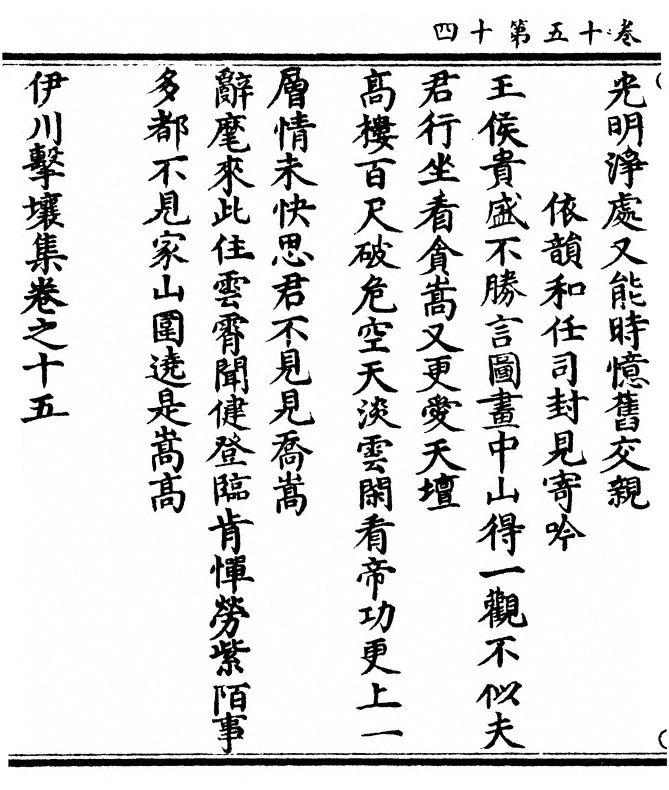 卷十五第十四
光明淨處又能時憶舊交親
依韻和任司封見寄吟
王侯貴盛不勝言圖畫中山得一觀不似夫
君行坐看貪嵩又更愛天壇
高樓百尺破危空天淡雲閑看帝功更上一
層情未快思君不見見喬嵩
辭麾來此住雲霄聞健登臨肯憚勞紫陌事
多都不見家山圍遶是嵩高
伊川擊壤集卷之十五